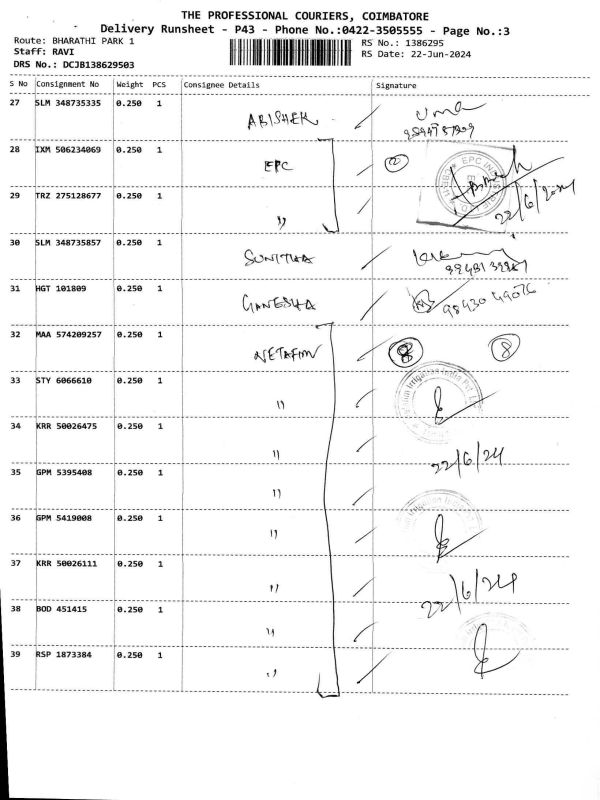 THE PROFESSIONAL COURIERS, COIMBATORE
Delivery Runsheet - P43 - Phone No.:0422-3505555 - Page No.:3
Route: BHARATHI PARK 1
RS No.: 1386295
Staff: RAVI
RS Date: 22-Jun-2024
DRS No.: DCJB138629503
S No Consignment No Weight PCS Consignee Details Signature
27 SLM 348735335 0.250 1 ABISHEK Uma
28 IXM 506234069 0.250 1 EPC 2
EPC INDUSTRIE
29 TRZ 275128677 0.250 1 "
22/6/2024
30 SLM 348735857 0.250 1 SUNITHA
31 HGT 101809 0.250 1 GANESHA
32 MAA 574209257 0.250 1 NETAFIM 8 8
33 STY 6066610 0.250 1 "
Irrigation India Pvt
34 KRR 50026475 0.250 1 "
22/6/24
35 GPM 5395408 0.250 1 "
36 GPM 5419008 0.250 1 "
37 KRR 50026111 0.250 1 "
22/6/24
38 BOD 451415 0.250 1 "
39 RSP 1873384 0.250 1 "